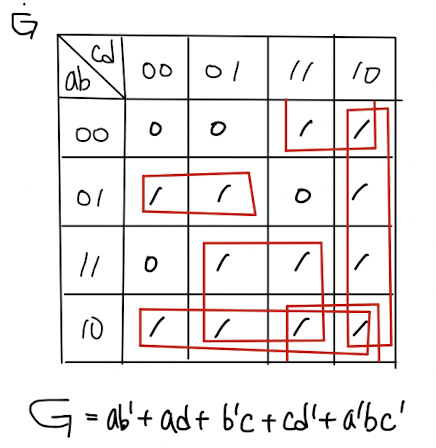 Ġ
cd
ab
00 01 11 10
00 0 0 1 1
01 1 1 0 1
11 0 1 1 1
10 1 1 1 1
G = ab' + ad + b'c + cd' + a'bc'